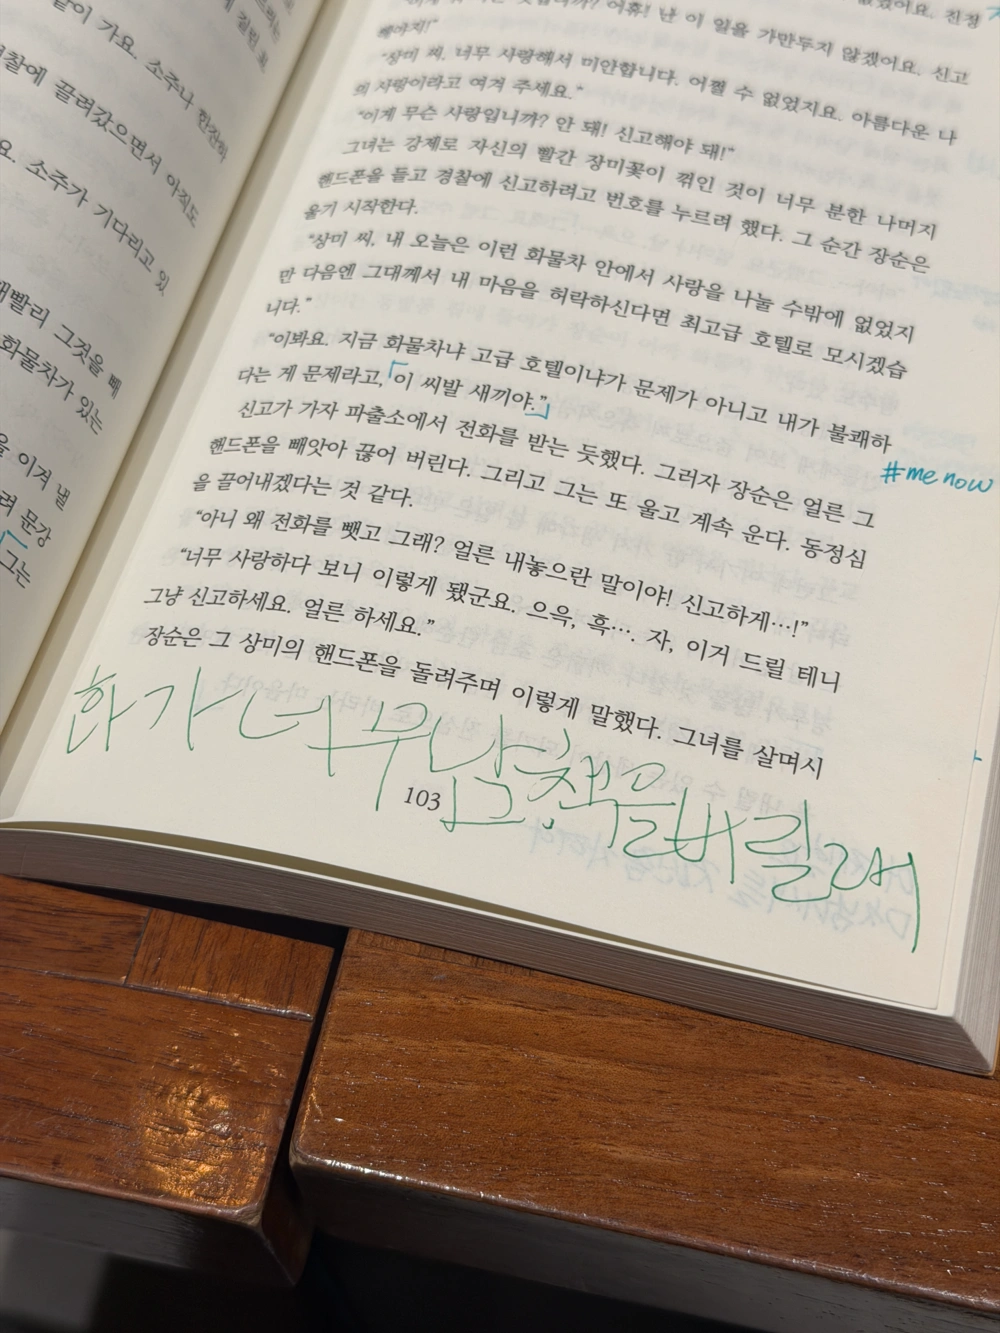 고
에 질린 최
같이 가요. 소주나 한잔하
경찰에 끌려갔으면서 아직도
요. 소주가 기다리고 있
재빨리 그것을 빼
화물차가 있는
을 이겨 낼
려 문강
「그는
없겠어요. 친정
어휴! 난 이 일을 가만두지 않겠어요. 신고
해야지!"
"상미 씨, 너무 사랑해서 미안합니다. 어쩔 수 없었지요. 아름다운 나
의 사랑이라고 여겨 주세요."
"이게 무슨 사랑입니까? 안 돼! 신고해야 돼!"
그녀는 강제로 자신의 빨간 장미꽃이 꺾인 것이 너무 분한 나머지
핸드폰을 들고 경찰에 신고하려고 번호를 누르려 했다. 그 순간 장순은
울기 시작한다.
"상미 씨, 내 오늘은 이런 화물차 안에서 사랑을 나눌 수밖에 없었지
만 다음엔 그대께서 내 마음을 허락하신다면 최고급 호텔로 모시겠습
니다."
"이봐요. 지금 화물차냐 고급 호텔이냐가 문제가 아니고 내가 불쾌하
다는 게 문제라고, 「이 씨발 새끼야."」
#me now
신고가 가자 파출소에서 전화를 받는 듯했다. 그러자 장순은 얼른 그
핸드폰을 빼앗아 끊어 버린다. 그리고 그는 또 울고 계속 운다. 동정심
을 끌어내겠다는 것 같다.
"아니 왜 전화를 뺏고 그래? 얼른 내놓으란 말이야! 신고하게…!"
"너무 사랑하다 보니 이렇게 됐군요. 으윽, 흑…. 자, 이거 드릴 테니
그냥 신고하세요. 얼른 하세요."
장순은 그 상미의 핸드폰을 돌려주며 이렇게 말했다. 그녀를 살며시
화가 너무남 책을버릴래
103